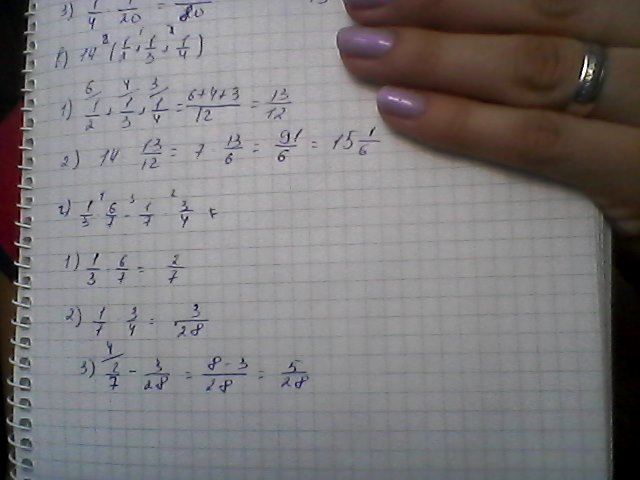 3) 1/4 · 1/20 = /80
14 (1/2 + 1/3 + 1/4)
1) 1/2 + 1/3 + 1/4 = 6+4+3/12 = 13/12
2) 14 · 13/12 = 7 · 13/6 = 91/6 = 15 1/6
г) 1/3 · 6/7 - 1/7 · 3/4
1) 1/3 · 6/7 = 2/7
2) 1/7 · 3/4 = 3/28
3) 2/7 - 3/28 = 8-3/28 = 5/28